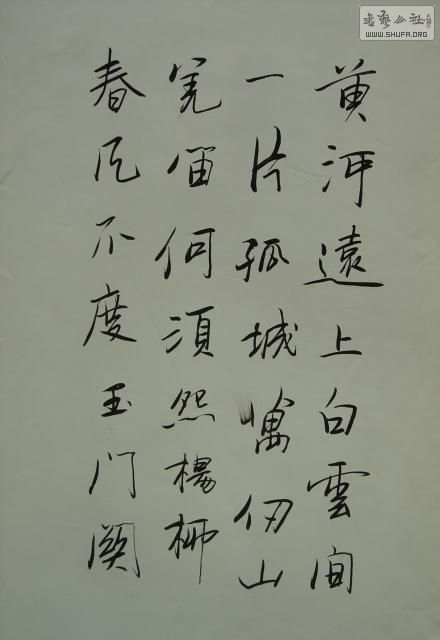 黄河遠上白雲间
一片孤城萬仞山
羌笛何須怨楊柳
春风不度玉门関
書藝公社
WWW.SHUFA.ORG